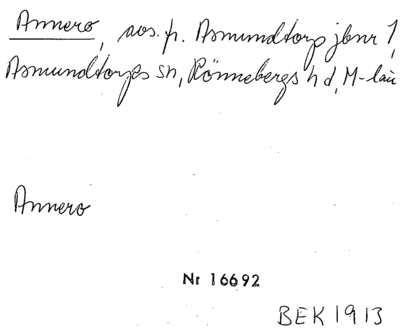 Annero, avs. fr. Asmundtorp jbnr 1,
Asmundtorps sn, Rönnebergs hd, M-län
Annero
Nr 16692
BEK 1913